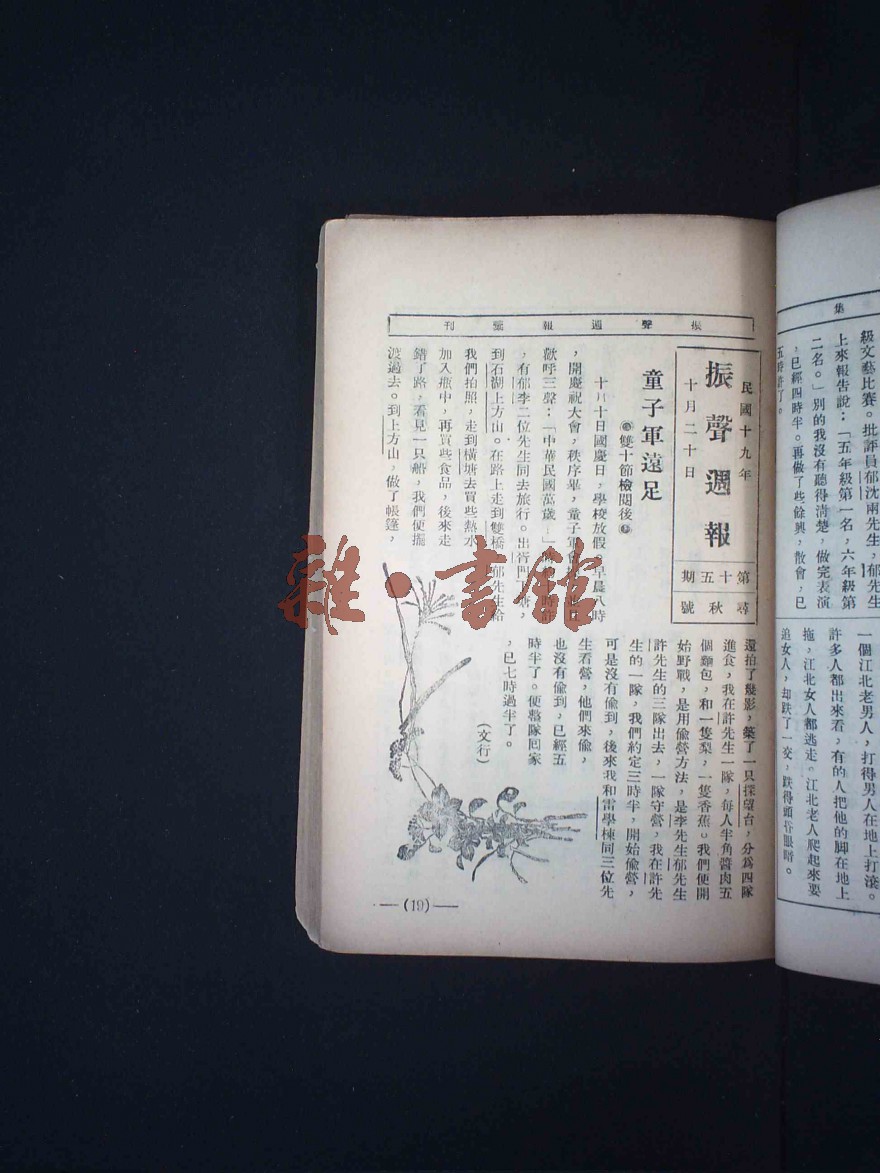 集
級文藝比賽。批評員郁沈兩先生,郁先生
上來報吿說:「五年級第一名,六年級第
二名。」別的我沒有聽得淸楚,做完表演
,已經四時半。再做了些餘興,散會,已
五時許了。
一個江北老男人,打得男人在地上打滾。
許多人都出來看,有的人把他的脚在地上
拖,江北女人都逃走。江北老人爬起來要
追女人,却跌了一交,跌得頭昏眼暗。
振聲週報彙刊
民國十九年
十月二十日
振聲週報
第十五期
尋秋號
童子軍遠足
雙十節檢閱後
十月十日國慶日,學校放假。早晨八時
,開慶祝大會,秩序畢,童子軍會
歡呼三聲:「中華民國萬歲
,有郁李二位先生同去旅行。出胥門
到石湖上方山。在路上走到雙橋,郁先生給
我們拍照,走到橫塘去買些熱水
加入瓶中,再買些食品,後來走
錯了路,看見一只船,我們便擺
渡過去。到上方山,做了帳篷,
還拍了幾影,築了一只探望台,分爲四隊
進食,我在許先生一隊,每人半角醬肉五
個麵包,和一隻梨,一隻香蕉。我們便開
始野戰,是用偸營方法,是李先生郁先生
許先生的三隊出去,一隊守營,我在許先
生的一隊,我們約定三時半,開始偸營,
可是沒有偸到,後來我和雷學棟同三位先
生看營,他們來偸,
也沒有偸到,已經五
時半了。便整隊回家
,已七時過半了。
(文行)
—(19)—
雜·書館